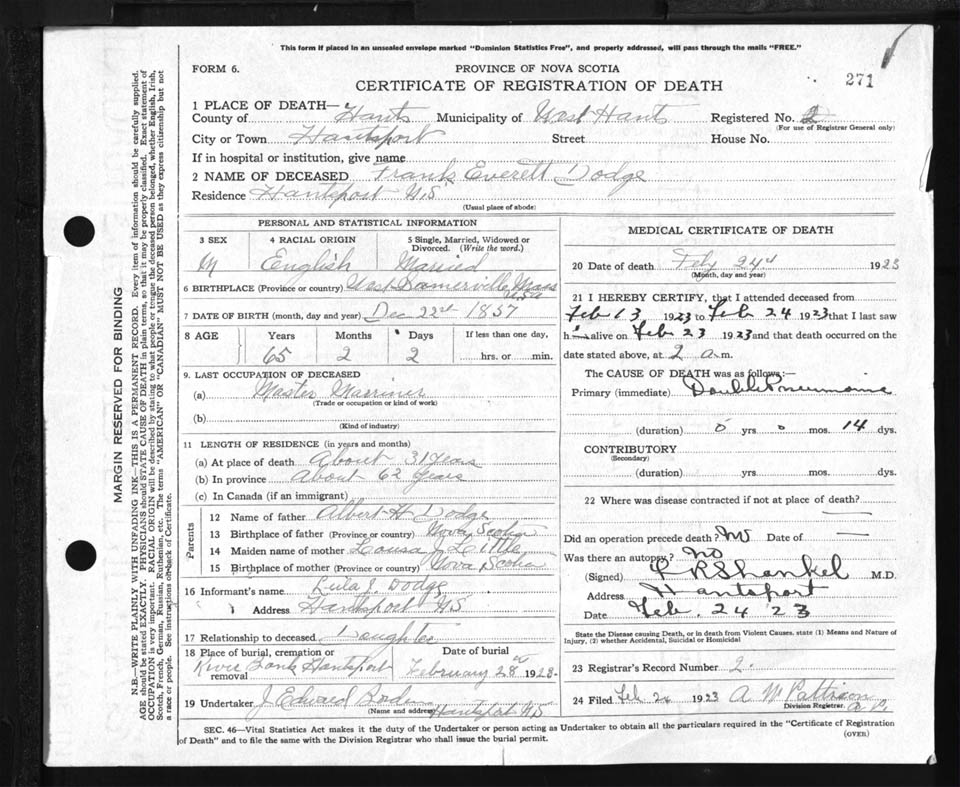 This form if placed in an unsealed envelope marked "Dominion Statistics Free", and properly addressed, will pass through the mails "FREE."
FORM 6.
PROVINCE OF NOVA SCOTIA
CERTIFICATE OF REGISTRATION OF DEATH
271
1 PLACE OF DEATH—
County of Hants Municipality of West Hants Registered No. 2
(For use of Registrar General only)
City or Town Hantsport Street House No.
If in hospital or institution, give name
2 NAME OF DECEASED Frank Everett Dodge
Residence Hantsport N.S
(Usual place of abode)
PERSONAL AND STATISTICAL INFORMATION
3 SEX 4 RACIAL ORIGIN 5 Single, Married, Widowed or Divorced. (Write the word.)
M English Married
6 BIRTHPLACE (Province or country) West Somerville Mass
USA
7 DATE OF BIRTH (month, day and year) Dec 22nd 1857
8 AGE Years Months Days If less than one day,
65 2 2 hrs. or min.
9. LAST OCCUPATION OF DECEASED
(a) Master Marriner
(Trade or occupation or kind of work)
(b)
(Kind of industry)
11 LENGTH OF RESIDENCE (in years and months)
(a) At place of death About 31 Years
(b) In province About 62 Years
(c) In Canada (if an immigrant)
Parents
12 Name of father Albert H Dodge
13 Birthplace of father (Province or country) Nova Scotia
14 Maiden name of mother Lousa J Little
15 Birthplace of mother (Province or country) Nova Scotia
16 Informant's name J. Dodge
Address Hantsport NS
17 Relationship to deceased Daughter
18 Place of burial, cremation or removal Date of burial
River Bank Hantsport February 28th 1923.
19 Undertaker J Edward Borden
(Name and address) Hantsport NS
MEDICAL CERTIFICATE OF DEATH
20 Date of death Feby 24th 1923
(Month, day and year)
21 I HEREBY CERTIFY, that I attended deceased from
Feb 13 1923 to Feb 24 1923 that I last saw
h alive on Feb 23 1923 and that death occurred on the
date stated above, at 2 a.m.
The CAUSE OF DEATH was as follows:—
Primary (immediate) Double Pneumonia
(duration) 0 yrs 0 mos. 14 dys.
CONTRIBUTORY
(Secondary)
(duration) yrs. mos. dys.
22 Where was disease contracted if not at place of death?
Did an operation precede death? No Date of —
Was there an autopsy? No
(Signed) P R Shankel M.D.
Address Hantsport
Date Feb. 24 '23
State the Disease causing Death, or in death from Violent Causes. state (1) Means and Nature of
Injury, (2) whether Accidental, Suicidal or Homicidal
23 Registrar's Record Number 2.
24 Filed Feb 1923 A M Pattison
Division Registrar.
SEC. 46—Vital Statistics Act makes it the duty of the Undertaker or person acting as Undertaker to obtain all the particulars required in the "Certificate of Registration
of Death" and to file the same with the Division Registrar who shall issue the burial permit.
(OVER)
MARGIN RESERVED FOR BINDING
N.B.—WRITE PLAINLY WITH UNFADING INK—THIS IS A PERMANENT RECORD. Every item of information should be carefully supplied.
AGE should be stated EXACTLY. PHYSICIANS should STATE CAUSE OF DEATH in plain terms, so that it may be properly classified. Exact statement of
OCCUPATION is very important. RACIAL ORIGIN will be described by stating to what people or tongue the deceased person belonged, whether English, Irish,
Scotch, French, German, Russian, Ruthenian, etc. The terms "AMERICAN" OR "CANADIAN" MUST NOT BE USED as they express citizenship but not
a race or people. See instructions on back of Certificate.